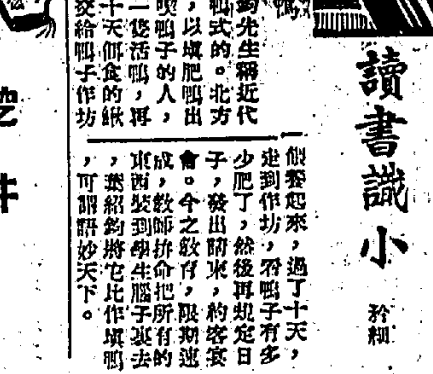 讀書識小
矜細
鴨
鈞先生稱近代
鴨式的。北方
，以填肥鴨出
喂鴨子的人，
一隻活鴨，再
十天餌食的繳
交給鴨子作坊
餵養起來，過了十天，
走到作坊，看鴨子有多
少肥了，然後再規定日
子，發出請柬，約客宴
會。今之教育，限期速
成，教師拚命把所有的
東西裝到學生腦子裏去
，葉紹鈞將它比作填鴨
，可謂語妙天下。
井